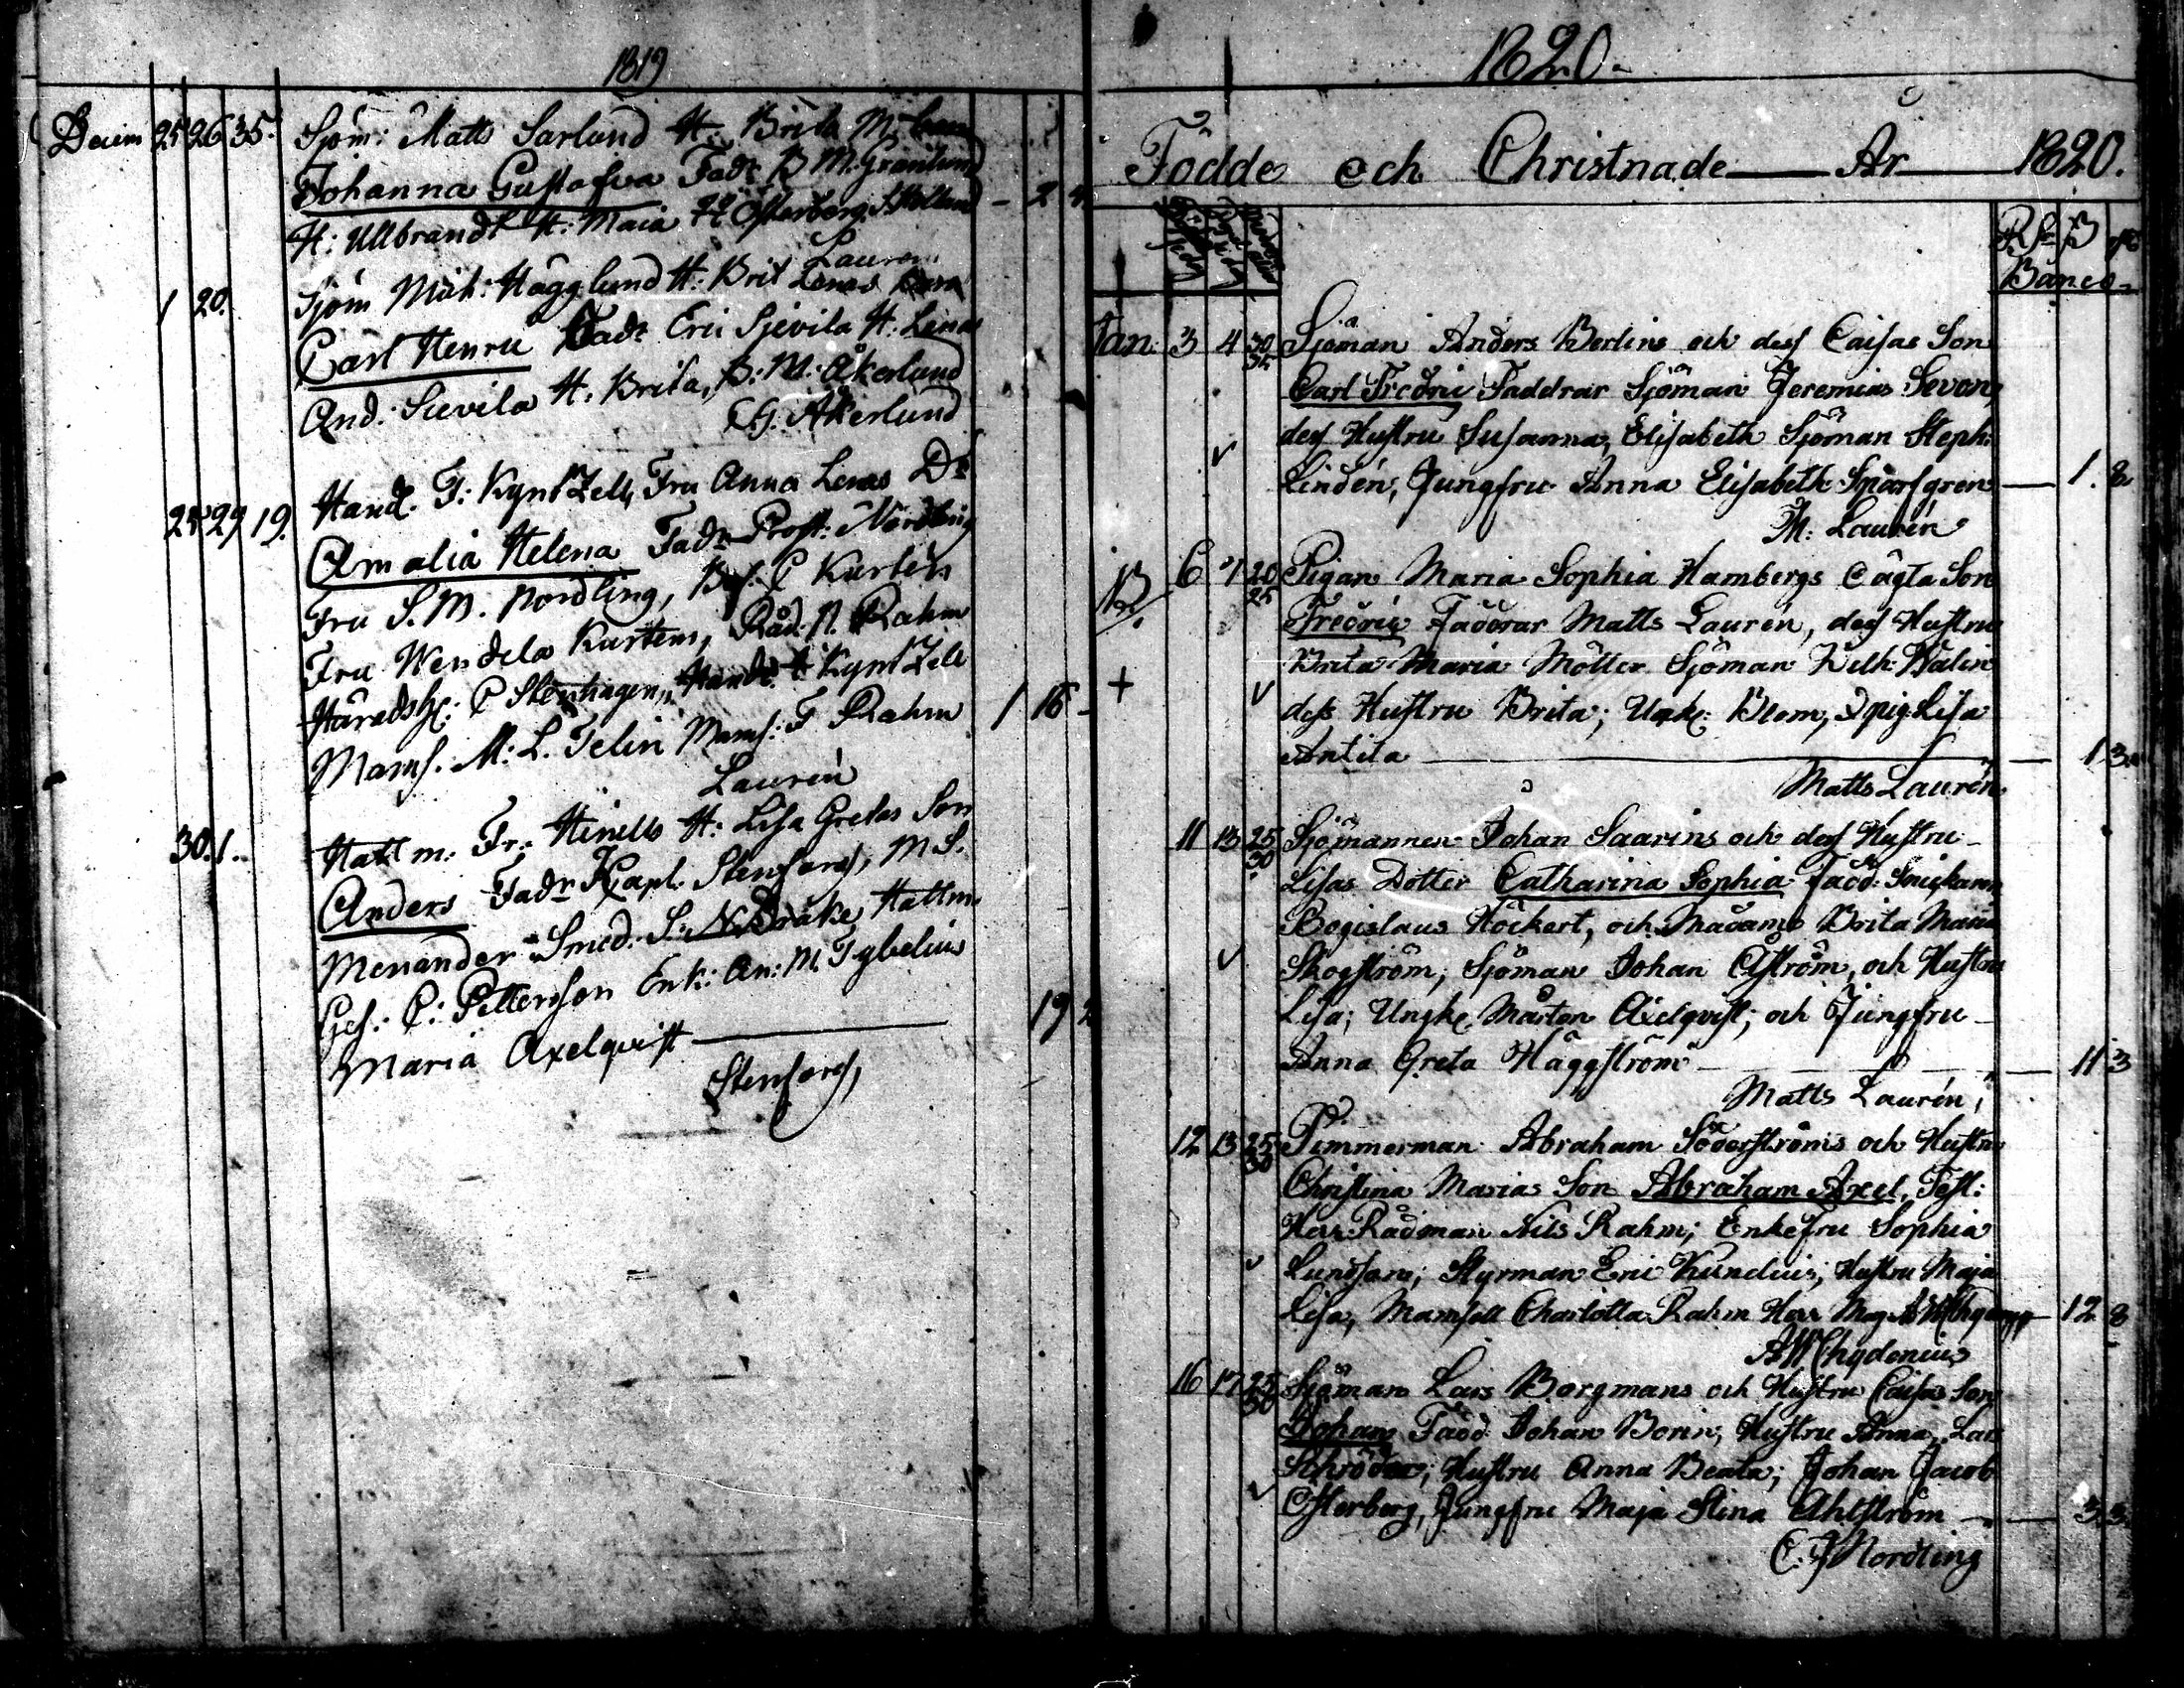 1819
Decem 25 26 35. Sjöm: Matts Sarlund H: Brita M:
Johanna Gustafva Fadr B M. Granlund
H: Ullbrandt H: Maia H Österberg, S Holland - 2
Lauren
1 20. Sjöm Mich: Hägglund H: Brit Lenas
Carl Henric Fadr Eric Sievila H: Lena
And: Sievila H. Brita, B: M: Åkerlund
C. G. Åkerlund
28 29 19. Hand. F: Kyntzell, Fru Anna Lenas Dr
Amalia Helena Fadr Prost: Nordling
Fru S. M. Nordling, C Kurtén
Fru Wendela Kurtens, Råd. N. Rahm
Häradsh: C Stenhagen, Hand: Kyntzell
Mams. M: L. Telin Mams: F Rahm 1 16 -
Laurén
30. 1. Hattm. Fr: Hinells H: Lisa Gretas Son
Anders Fadr Kapl. Stenfors, M S.
Menander Smed. S. N Bråke, Hattm.
Ges: P: Pettersson Enk: An: M Tybelius
Maria Axelqvist 19 2
Stenfors,
1820.
Födde och Christnade År 1820.
Rdr ß
Banco
Jan. 3 4 30 Sjöman Anders Berlins och dess Caisas Son
Carl Fredric Faddrar Sjöman Jeremias Sevon,
dess Hustru Susanna, Elisabeth Sjöman Steph:
Lindén, Jungfru Anna Elisabeth Sparfgren 1. 8
M: Laurén
6 7 20 25 Pigan Maria Sophia Hambergs oägta Son
Fredric Faddrar Matts Laurén, dess Hustru
Brita Maria Möller Sjöman Wilh: Walin
dess Hustru Brita; Ungk: Blom, pig: Lisa
Antila 1 3
Matts Laurén
11 13 25 30 Sjömannen Johan Saarins och dess Hustru
Lisas Dotter Catharina Sophia Fadd: Snickaren
Bogislaus Höckert, och Madame Brita Maria
Skogström; Sjöman Johan Åström, och Hustru
Lisa; Ungk: Mårten Axelqvist; och Jungfru
Anna Greta Häggström 11 3
Matts Laurén,
12 13 25 30 Timmerman Abraham Söderströms och Hustru
Christina Marias Son Abraham Axel, Test:
Herr Rådman Nils Rahm; Enkefru Sophia
Lundsan; Styrman Eric Kundius; Hustru Maja
Lisa, Mamsell Charlotta Rahm Herr Mag 12 8
A W Chydenius
16 17 25 30 Sjöman Lars Borgmans och Hustru Caisas Son
Johan Fadd: Johan Borin, Hustru Anna, Lars
Schröder; Hustru Anna Beata; Johan Jacob
Österberg, Jungfru Maja Stina Ahlström 3 3
C. J Nordling